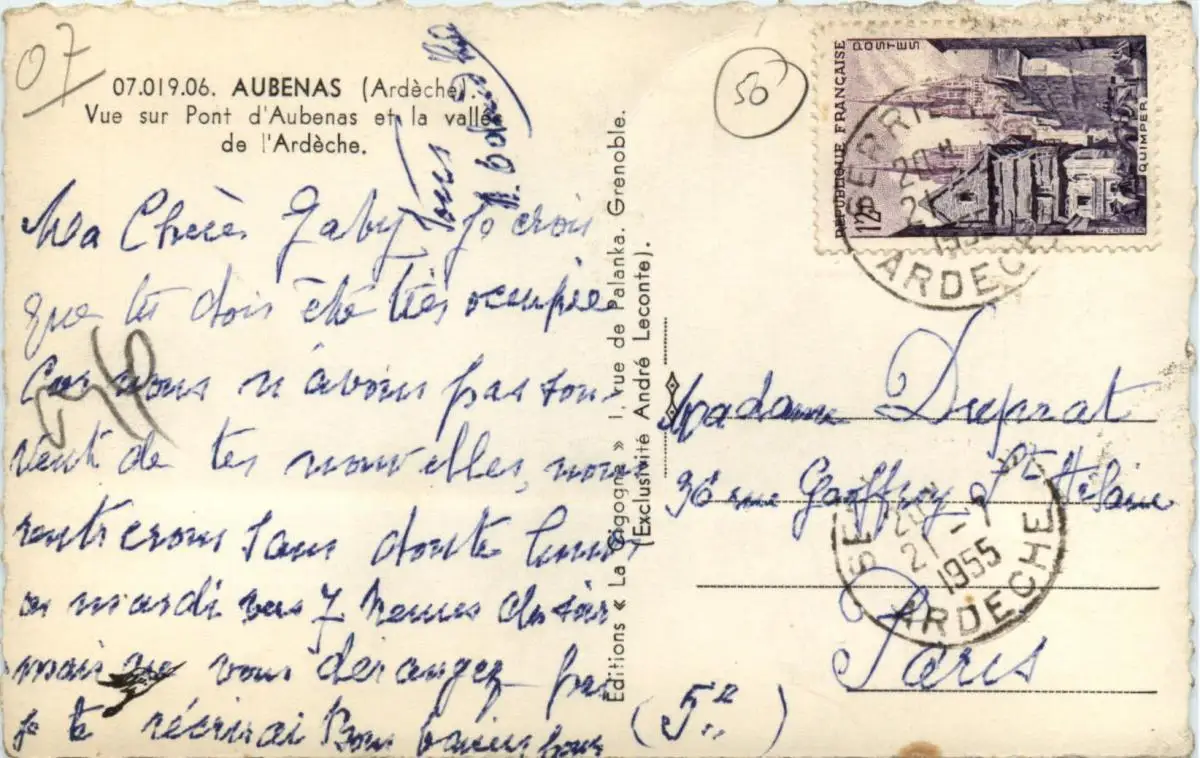 07
07.019.06. AUBENAS (Ardèche).
Vue sur Pont d'Aubenas et la vallée
de l'Ardèche.
tous
Ma Chère Gaby, je crois
que tu dois être très occupée
Car nous n'avons pas sou-
vent de tes nouvelles, nous
rentrerons sans doute lundi
ou mardi vers 7 heures du soir
mais ne vous dérangez pas
je te récrirai Bons baisers pour
Editions « La Cigogne » 1, rue de Palanka. Grenoble.
(Exclusivité André Leconte).
50
REPUBLIQUE FRANÇAISE
POSTES
QUIMPER
12F
ARDECHE
Madame Duprat
36 rue Geoffroy St Hilaire
Paris
(5e)
21-7
1955
ARDECHE